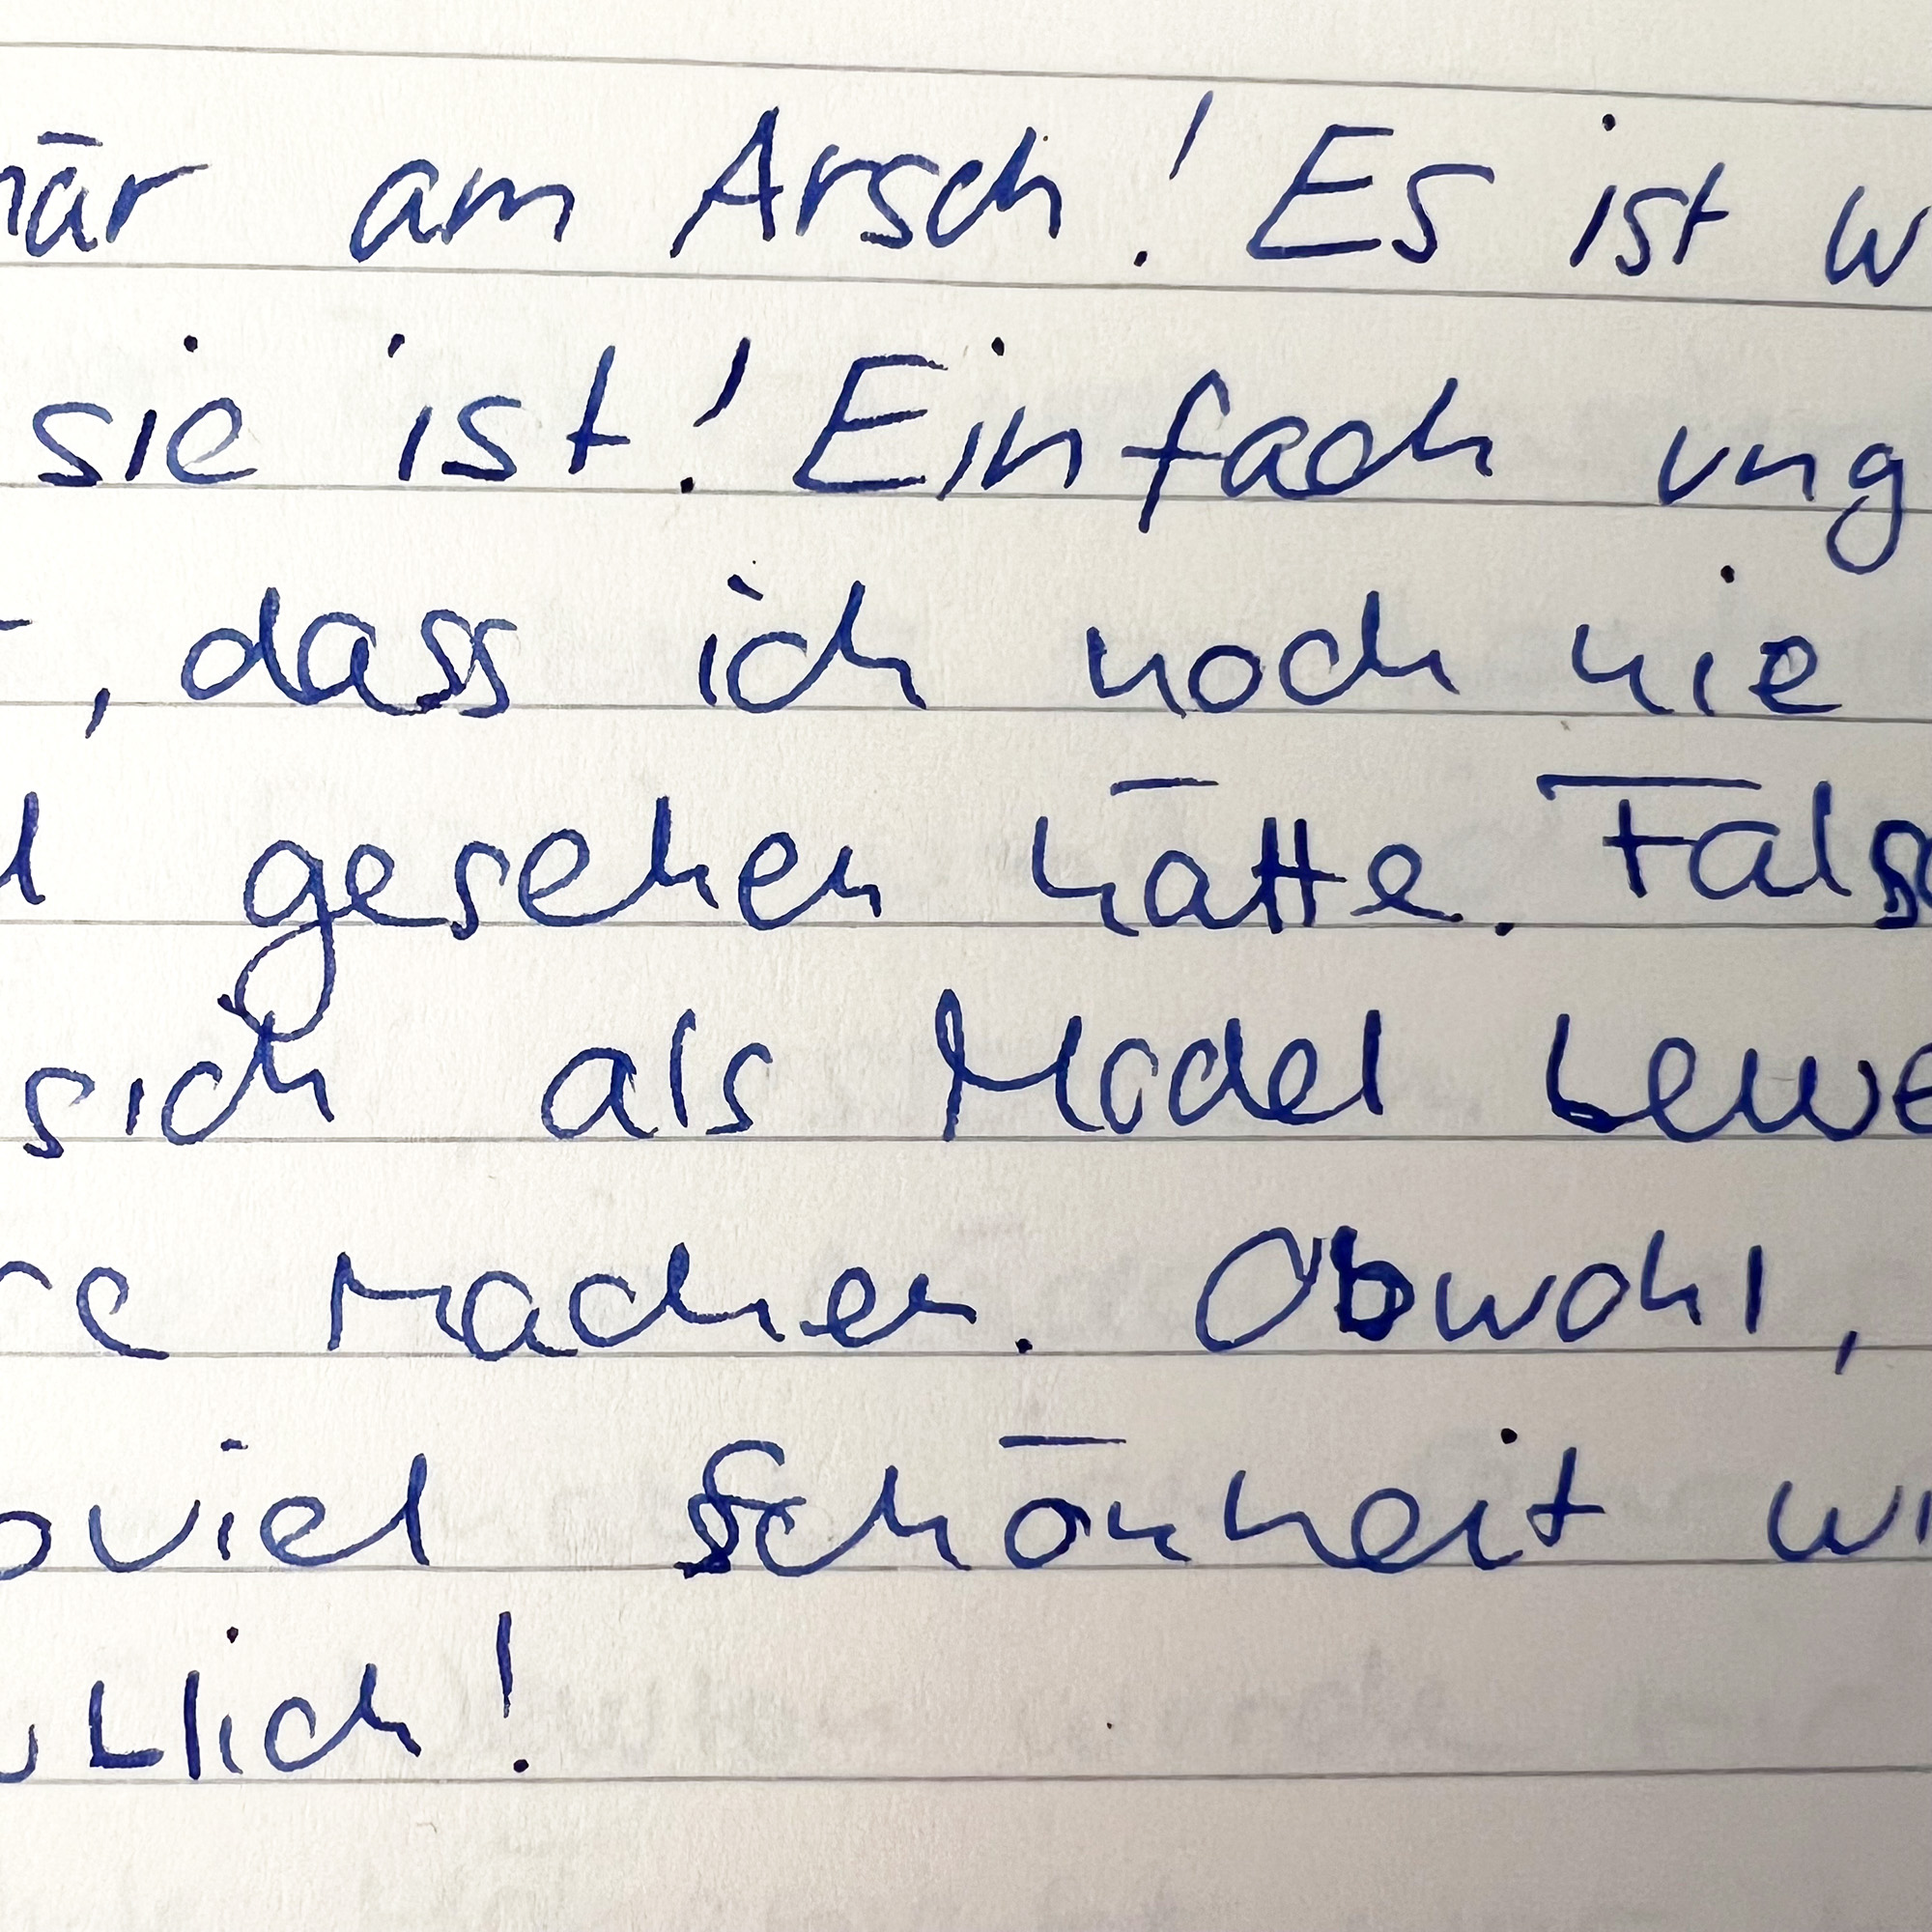 när am Arsch! Es ist w
sie ist! Einfach ung
, dass ich noch nie
l gesehen hätte. Falsc
sich als Model bewe
re machen. Obwohl,
oviel Schönheit wi
blich!